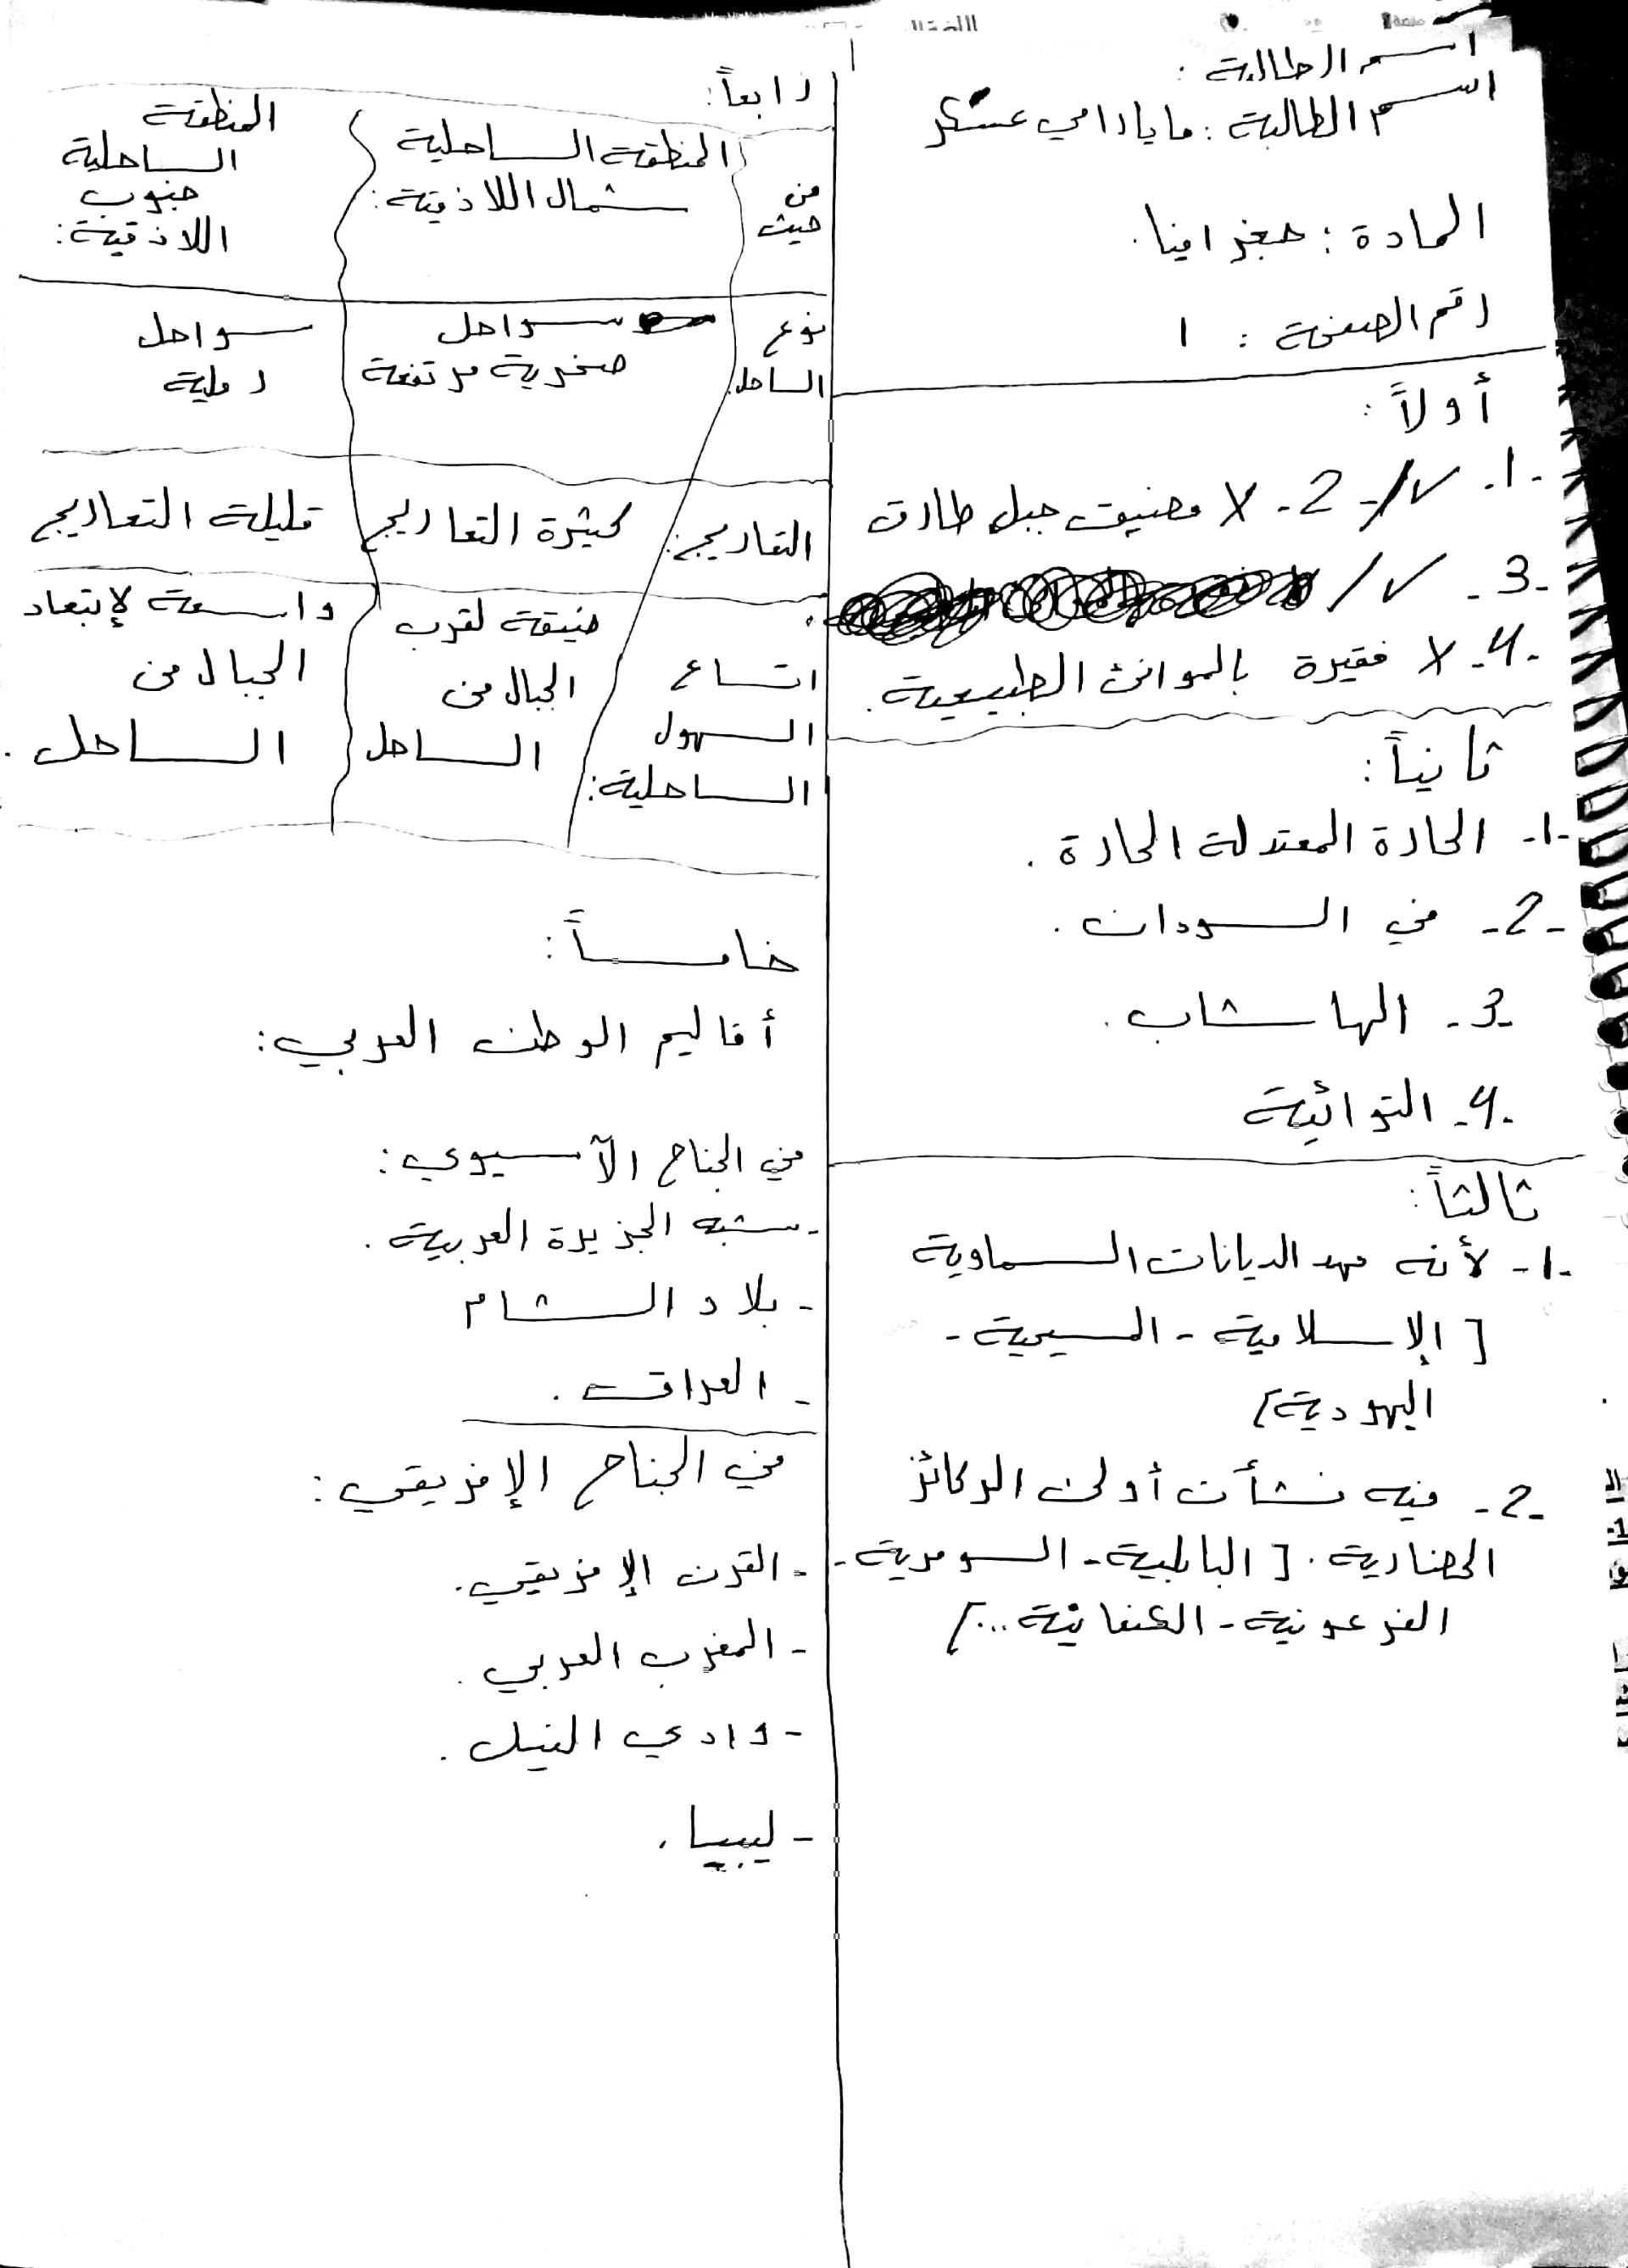 اسم الطالبة :
اسم الطالبة : مايا رامي عسكر
المادة : جغرافيا .
رقم الصفحة : ١
أولاً :
1- ✓ / 2- X مضيق جبل طارق
3- ✓ /
4- X فقيرة بالموانئ الطبيعية .
ثانياً :
1- الحارة المعتدلة الحارة .
2- في السودان .
3- الهاشاب .
4- التوائية
ثالثاً :
1- لأنه مهد الديانات السماوية
[ الإسلامية - المسيحية -
اليهودية ]
2- فيه نشأت أولى الركائز
الحضارية . [ البابلية - السومرية -
الفرعونية - الكنعانية ... ]
رابعاً :
من حيث
المنطقة الساحلية
شمال اللاذقية :
المنطقة
الساحلية
جنوب
اللاذقية :
نوع
الساحل
سواحل
صخرية مرتفعة
سواحل
رملية
التعاريج :
كثيرة التعاريج
قليلة التعاريج
اتساع
السهول
الساحلية :
ضيقة لقرب
الجبال من
الساحل
واسعة لإبتعاد
الجبال من
الساحل .
خامساً :
أقاليم الوطن العربي :
في الجناح الآسيوي :
- شبه الجزيرة العربية .
- بلاد الشام
- العراق .
في الجناح الإفريقي :
- القرن الإفريقي .
- المغرب العربي .
- وادي النيل .
- ليبيا .